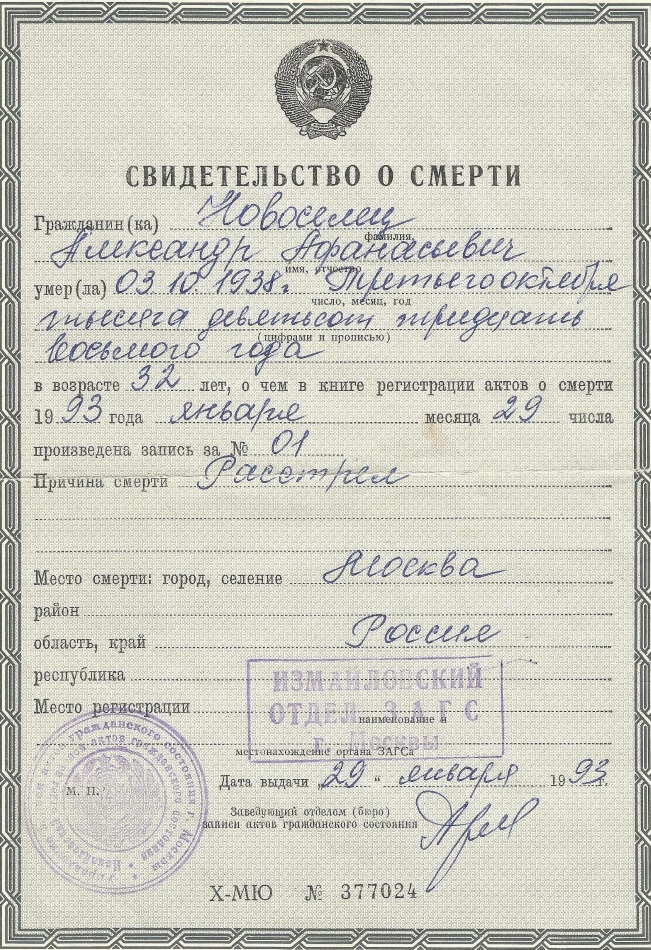 СВИДЕТЕЛЬСТВО О СМЕРТИ
Гражданин(ка) Новоселец
фамилия,
Александр Афанасьевич
имя, отчество
умер(ла) 03.10.1938г. Третьего октября
число, месяц, год
тысяча девятьсот тридцать
(цифрами и прописью)
восьмого года
в возрасте 32 лет, о чем в книге регистрации актов о смерти
19 93 года января месяца 29 числа
произведена запись за № 01
Причина смерти Расстрел
Место смерти: город, селение Москва
район
область, край Россия
республика
ИЗМАЙЛОВСКИЙ
Место регистрации ОТДЕЛ ЗАГС
наименование и
г. Москвы
местонахождение органа ЗАГСа
Дата выдачи „29“ января 19 93 г.
М. П.
Заведующий отделом (бюро)
записи актов гражданского состояния
X-МЮ № 377024